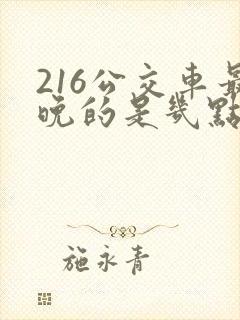 216公交車最
晚的是幾點
施永青